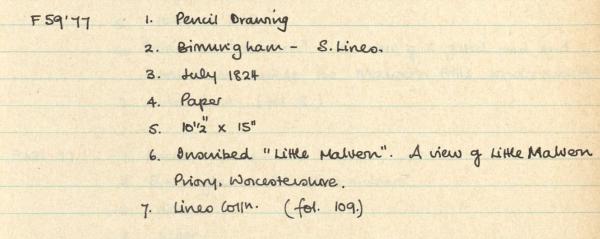 F59'77 1. Pencil Drawing
2. Birmingham - S. Lines.
3. July 1824
4. Paper
5. 10½" x 15"
6. Inscribed "Little Malvern". A view of Little Malvern
Priory, Worcestershire.
7. Lines Colln. (fol. 109.)